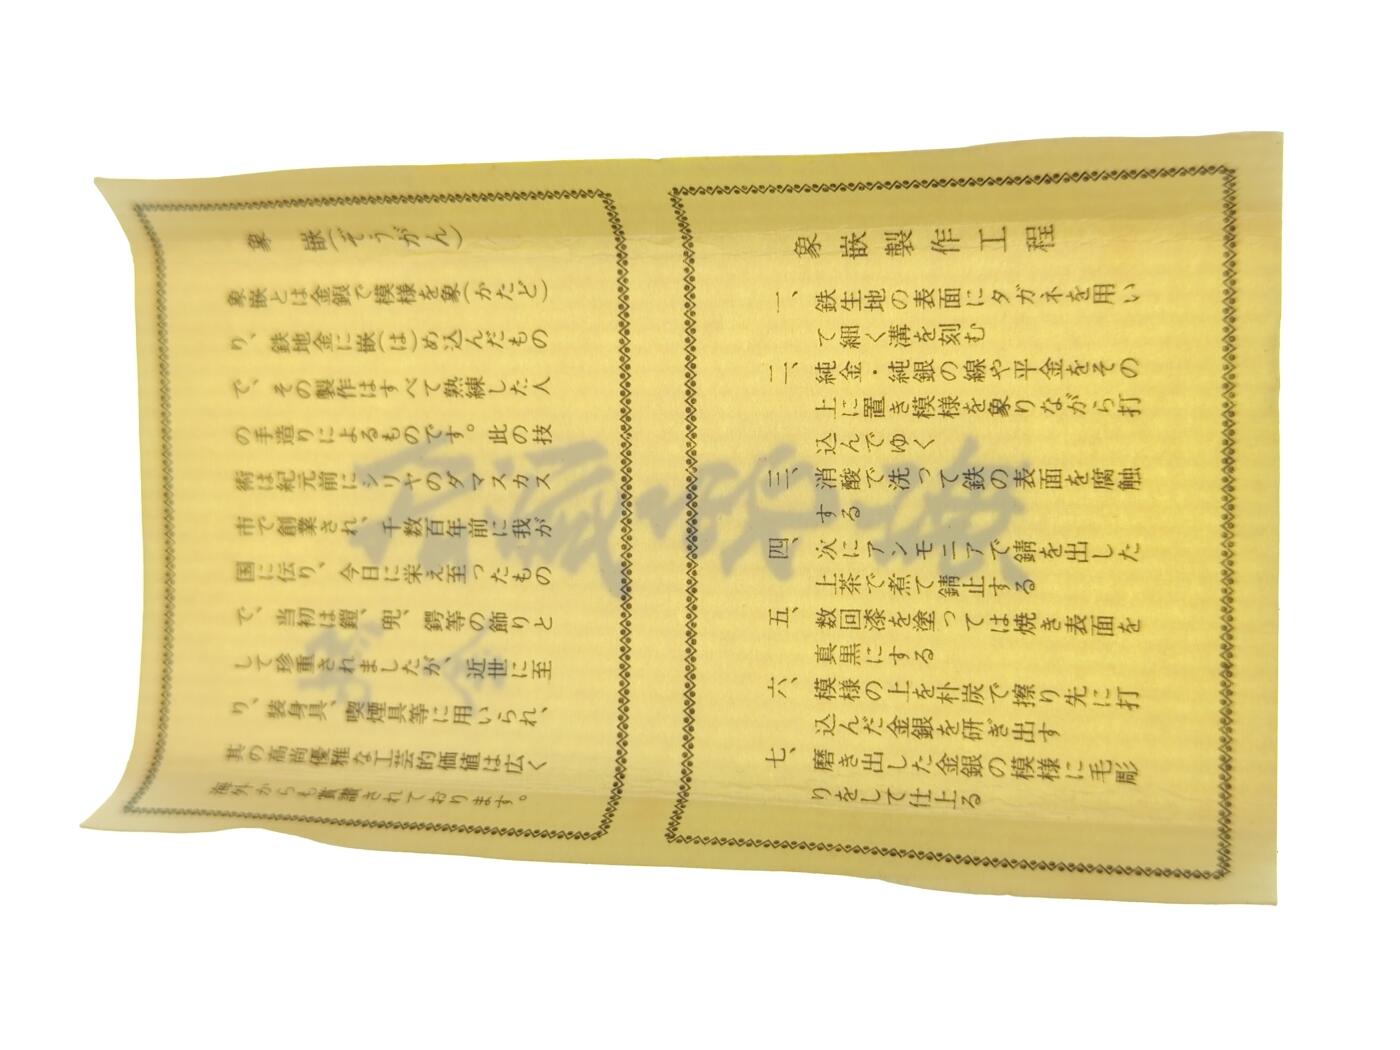 象嵌(ぞうがん)
象嵌とは金銀で模様を象(かたど)
り、鉄地金に嵌(は)め込んだもの
で、その製作はすべて熟練した人
の手造りによるものです。此の技
術は紀元前にシリヤのダマスカス
市で創業され、千数百年前に我が
国に伝り、今日に栄え至ったもの
で、当初は鎧、兜、鍔等の飾りと
して珍重されましたが、近世に至
り、装身具、喫煙具等に用いられ、
其の高尚優雅な工芸的価値は広く
海外からも賞讃されております。
象嵌製作工程
一、鉄生地の表面にタガネを用い
て細く溝を刻む
二、純金・純銀の線や平金をその
上に置き模様を象りながら打
込んでゆく
三、消酸で洗って鉄の表面を腐触
する
四、次にアンモニアで錆を出した
上茶で煮て錆止する
五、数回漆を塗っては焼き表面を
真黒にする
六、模様の上を朴炭で擦り先に打
込んだ金銀を研ぎ出す
七、磨き出した金銀の模様に毛彫
りをして仕上る